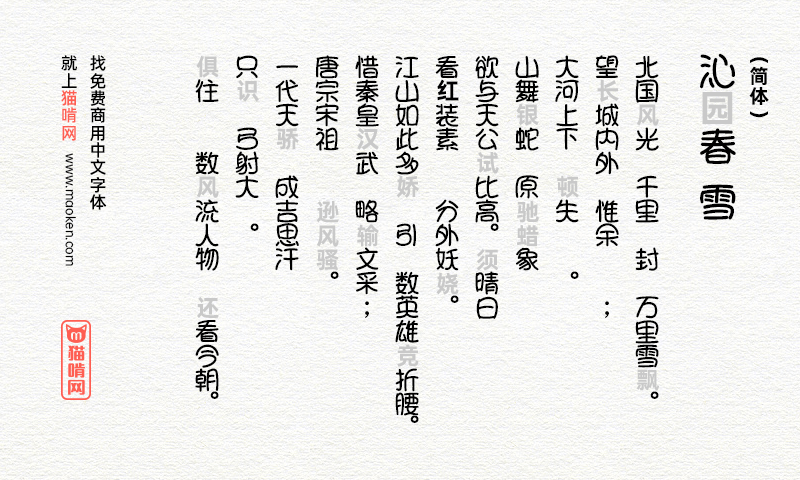 (简体)
沁园春 雪
北国风光 千里 封 万里雪飘。
望长城内外 惟余 ；
大河上下 顿失 。
山舞银蛇 原驰蜡象
欲与天公试比高。须晴日
看红装素 分外妖娆。
江山如此多娇 引 数英雄竞折腰。
惜秦皇汉武 略输文采；
唐宗宋祖 逊风骚。
一代天骄 成吉思汗
只识 弓射大 。
俱往 数风流人物 还看今朝。
找免费商用中文字体
就上猫啃网 www.maoken.com
猫啃网